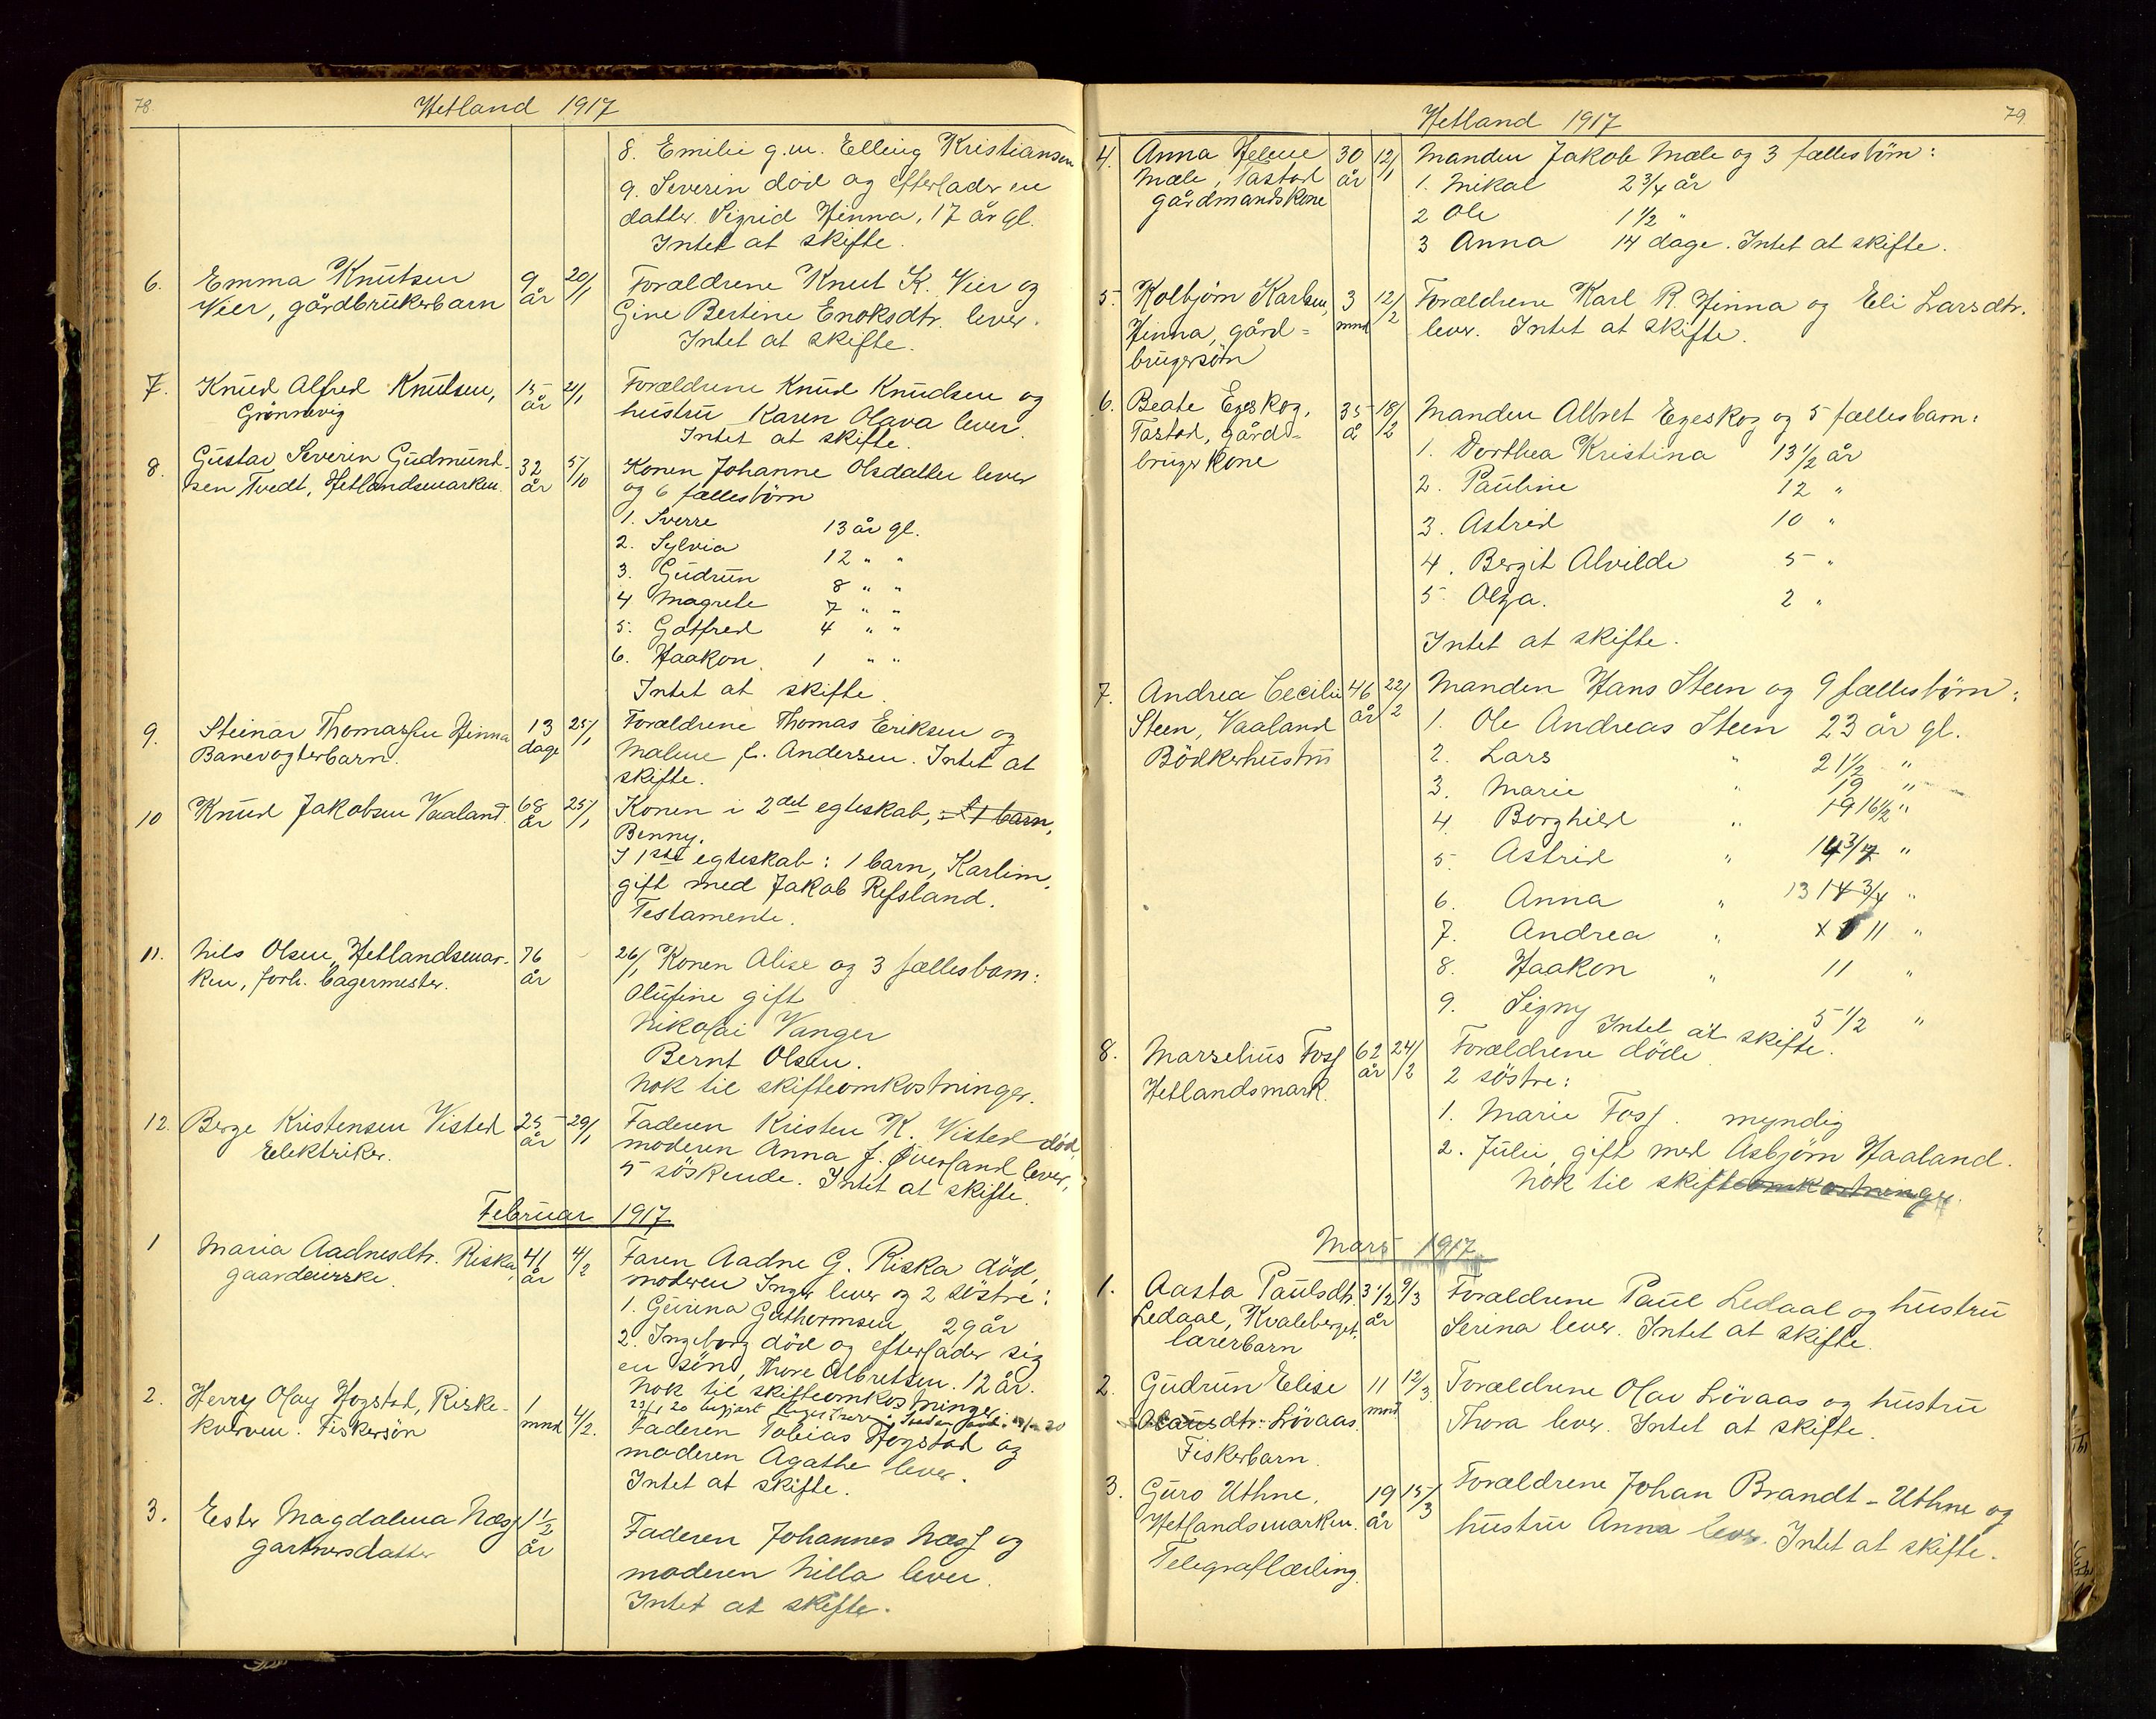 78.
Hetland 1917
8. Emilie g.m. Elling Kristiansen
9. Severin död og efterlader en
datter. Sigrid Hinna, 17 år gl.
Intet at skifte.
6. Emma Knutsen 9 20/1 Forældrene Knut K. Vier og
Vier, gårdbrukerbarn år Gine Bertine Enoksdtr. lever.
Intet at skifte.
7. Knud Alfred Knutsen, 15 21/1 Forældrene Knud Knudsen og
Grönnevig år hustru Karen Olava lever.
Intet at skifte.
8. Gustav Severin Gudmund- 32 5/10 Konen Johanne Olsdatter lever
sen Tvedt, Hetlandsmarken. år og 6 fællesbörn
1. Sverre 13 år gl.
2. Sylvia 12 " "
3. Gudrun 8 " "
4 Magrete 7 " "
5. Gotfred 4 " "
6. Haakon. 1 " "
Intet at skifte.
9. Steinar Thomassen Hinna 13 25/1 Forældrene Thomas Eriksen og
Banevogterbarn. dage Malene f. Andersen. Intet at
skifte.
10 Knud Jakobsen Vaaland. 68 25/1 Konen i 2det egteskab, 1 barn,
år Benny.
I 1ste egteskab: 1 barn, Karline,
gift med Jakob Refsland.
Testamente.
11. Nils Olsen, Hetlandsmar- 76 26/1 Konen Alise og 3 fællesbarn:
ken, forh. bagermester. år Olufine gift
Nikolai Vanger
Bernt Olsen.
Nok til skifteomkostninger.
12. Berge Kristensen Visted 25 29/1 Faderen Kristen K. Visted död,
Elektriker. år moderen Anna J. Øverland lever,
5 söskende. Intet at skifte.
Februar 1917
1 Maria Aadnesdtr. Riska, 41 4/2 Faren Aadne G. Riska död,
gaardeierske. år moderen Inger lever og 2 söstre:
1. Gurina Guthormsen 29 år
2. Ingeborg död og efterlader sig
en sön, Thore Albretsen. 12 år.
Nok til skifteomkostninger.
2. Herry Olay Hogstad, Riske- 1 4/2. Faderen Tobias Hogstad og
kverven. Fiskersön mnd moderen Agathe lever.
Intet at skifte.
3. Ester Magdalena Næss 1 1/2 Faderen Johannes Næss og
gartnersdatter år moderen Nilla lever.
Intet at skifte.
Hetland 1917
79
4. Anna Helene 30 12/1 Manden Jakob Mæle og 3 fællesbörn:
Mæle, Tastad år 1. Mikal 2 3/4 år
gårdmandskone 2 Ole 1 1/2 "
3 Anna 14 dage. Intet at skifte.
5. Kolbjörn Karlsen, 3 12/2 Forældrene Karl R. Hinna og Eli Larsdtr.
Hinna, gård= mnd lever. Intet at skifte.
brugersön
6. Beate Egeskog, 35 18/2 Manden Albret Egeskog og 5 fællesbarn:
Tastad, gård= å 1. Dorthea Kristina 13 1/2 år
brugerkone 2. Pauline 12 "
3. Astrid 10 "
4. Bergit Alvilde 5 "
5. Olga. 2 "
Intet at skifte.
7. Andrea Cecilie 46 22/2 Manden Hans Steen og 9 fællesbörn:
Steen, Vaaland år 1. Ole Andreas Steen 23 år gl.
Bödkerhustru 2. Lars " 21 1/2 "
3. Marie " 19 "
4. Borghild " 19 16 1/2 "
5 Astrid " 14 3/4 "
6. Anna " 13 14 3/4 "
7. Andrea " 11 "
8. Haakon " 11 "
9. Signy 5 1/2 "
Intet at skifte.
8. Marselius Foss 62 24/2 Forældrene döde
Hetlandsmark. år 2 söstre:
1. Marie Foss. myndig
2. Julie, gift med Asbjörn Haaland.
Nok til skifteomkostninger.
Mars 1917
1. Aasta Paulsdtr. 3 1/2 9/3 Forældrene Paul Ledaal og hustru
Ledaal, Kvaleberget. år Serina lever. Intet at skifte.
lærerbarn
2. Gudrun Elise 11 12/3 Forældrene Olav Lövaas og hustru
Olausdtr. Lövaas. mnd Thora lever. Intet at skifte.
Fiskerbarn.
3. Guro Uthne, 19 15/3 Forældrene Johan Brandt-Uthne og
Hetlandsmarken. år hustru Anna lever. Intet at skifte.
Telegraflærling.